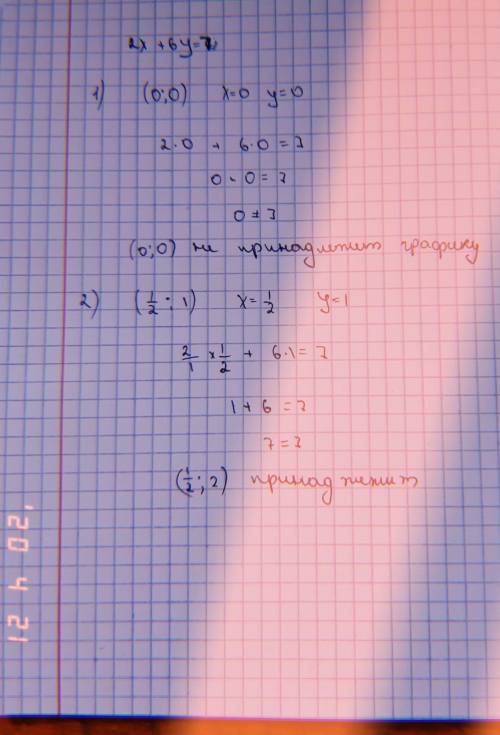 2x + 6y = 7
1) (0;0) x=0 y=0
2·0 + 6·0 = 7
0 - 0 = 7
0 ≠ 7
(0;0) не принадлежит графику
2) (1/2; 1) x = 1/2 y=1
2/1 × 1/2 + 6·1 = 7
1 + 6 = 7
7 = 7
(1/2; 2) принадлежит
'20 4 12